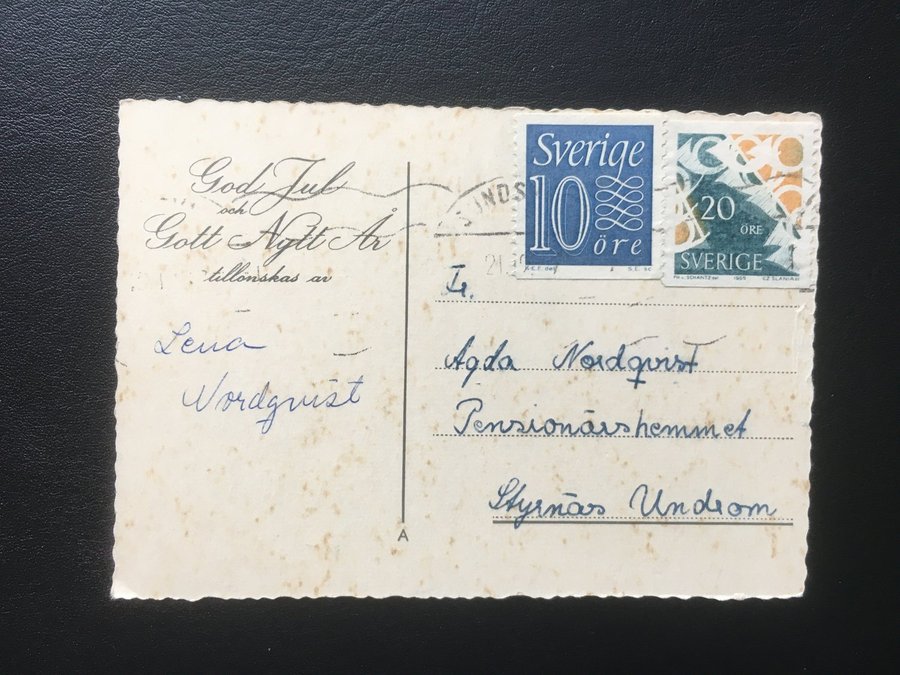 God Jul
och
Gott Nytt År
tillönskas av
Lena
Nordqvist
A
Sverige
10
öre
20
ÖRE
SVERIGE
1965
Fr.
Agda Nordqvist
Pensionärshemmet
Styrnäs Undrom